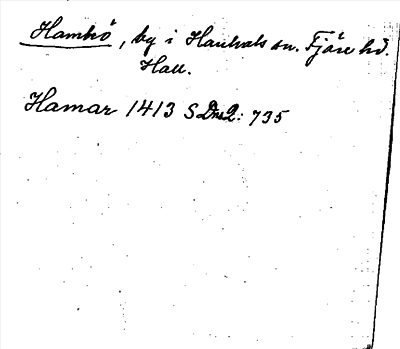 Hamhö, by i Hanhals sn. Fjäre hd.
Hall.
Hamar 1413 SDns2: 735